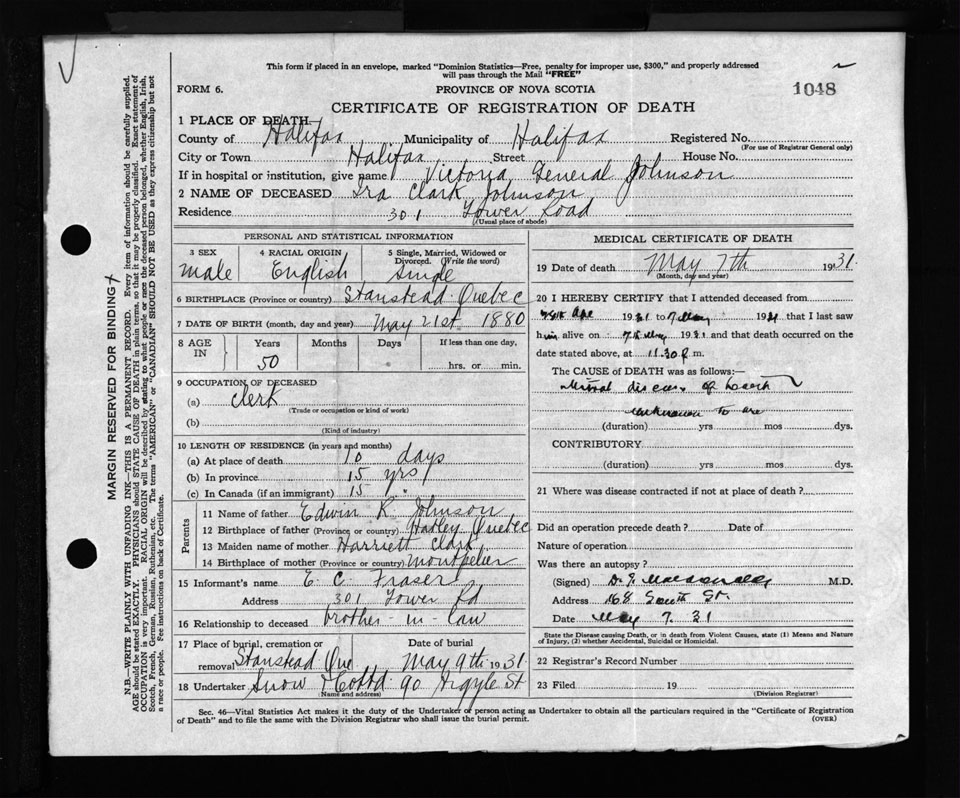 This form if placed in an envelope, marked "Dominion Statistics—Free, penalty for improper use, $300," and properly addressed
will pass through the Mail "FREE"
FORM 6. PROVINCE OF NOVA SCOTIA 1048
CERTIFICATE OF REGISTRATION OF DEATH
1 PLACE OF DEATH
County of Halifax Municipality of Halifax Registered No.
(For use of Registrar General only)
City or Town Halifax Street House No.
If in hospital or institution, give name Victoria General Johnson
2 NAME OF DECEASED Ira Clark Johnson
Residence 301 Tower Road
(Usual place of abode)
PERSONAL AND STATISTICAL INFORMATION
3 SEX 4 RACIAL ORIGIN 5 Single, Married, Widowed or
Divorced. (Write the word)
Male English Single
6 BIRTHPLACE (Province or country) Stanstead Quebec
7 DATE OF BIRTH (month, day and year) May 21st 1880
8 AGE IN Years Months Days If less than one day,
50 hrs. or min.
9 OCCUPATION OF DECEASED
(a) Clerk
(Trade or occupation or kind of work)
(b)
(Kind of industry)
10 LENGTH OF RESIDENCE (in years and months)
(a) At place of death 10 days
(b) In province 15 yrs
(c) In Canada (if an immigrant) 15 "
Parents
11 Name of father Edwin K. Johnson
12 Birthplace of father (Province or country) Hatley Quebec
13 Maiden name of mother Harriett Clark
14 Birthplace of mother (Province or country) Montpelier
15 Informant's name E. C. Fraser
Address 301 Tower Rd
16 Relationship to deceased brother-in-law
17 Place of burial, cremation or Date of burial
removal Stanstead Que May 9th 1931
18 Undertaker Snow & Co Ltd 90 Argyle St
(Name and address)
MEDICAL CERTIFICATE OF DEATH
19 Date of death May 7th 1931
(Month, day and year)
20 I HEREBY CERTIFY that I attended deceased from
Apr 1931 to 7 May 1931 that I last saw
him alive on 7th May 1931 and that death occurred on
date stated above, at 11.30 P m.
The CAUSE of DEATH was as follows:—
Mitral disease of heart
unknown to me
(duration) yrs mos dys.
CONTRIBUTORY
(duration) yrs mos dys.
21 Where was disease contracted if not at place of death?
Did an operation precede death? Date of
Nature of operation
Was there an autopsy?
(Signed) M.D.
Address 168 South St.
Date May 7. 31
State the Disease causing Death, or in death from Violent Causes, state (1) Means and Nature
of Injury, (2) whether Accidental, Suicidal or Homicidal.
22 Registrar's Record Number
23 Filed 19
(Division Registrar)
Sec. 46—Vital Statistics Act makes it the duty of the Undertaker or person acting as Undertaker to obtain all the particulars required in the "Certificate of Registration
of Death" and to file the same with the Division Registrar who shall issue the burial permit. (OVER)
MARGIN RESERVED FOR BINDING
N.B.—WRITE PLAINLY WITH UNFADING INK—THIS IS A PERMANENT RECORD. Every item of information should be carefully supplied.
AGE should be stated EXACTLY. PHYSICIANS should STATE CAUSE OF DEATH in plain terms, so that it may be properly classified. Exact statement of
OCCUPATION is very important. RACIAL ORIGIN will be described by stating to what people or race the deceased person belonged, whether English, Irish,
Scotch, French, German, Russian, Ruthenian, etc. The terms "AMERICAN" or "CANADIAN" SHOULD NOT BE USED as they express citizenship but not
a race or people. See instructions on back of Certificate.